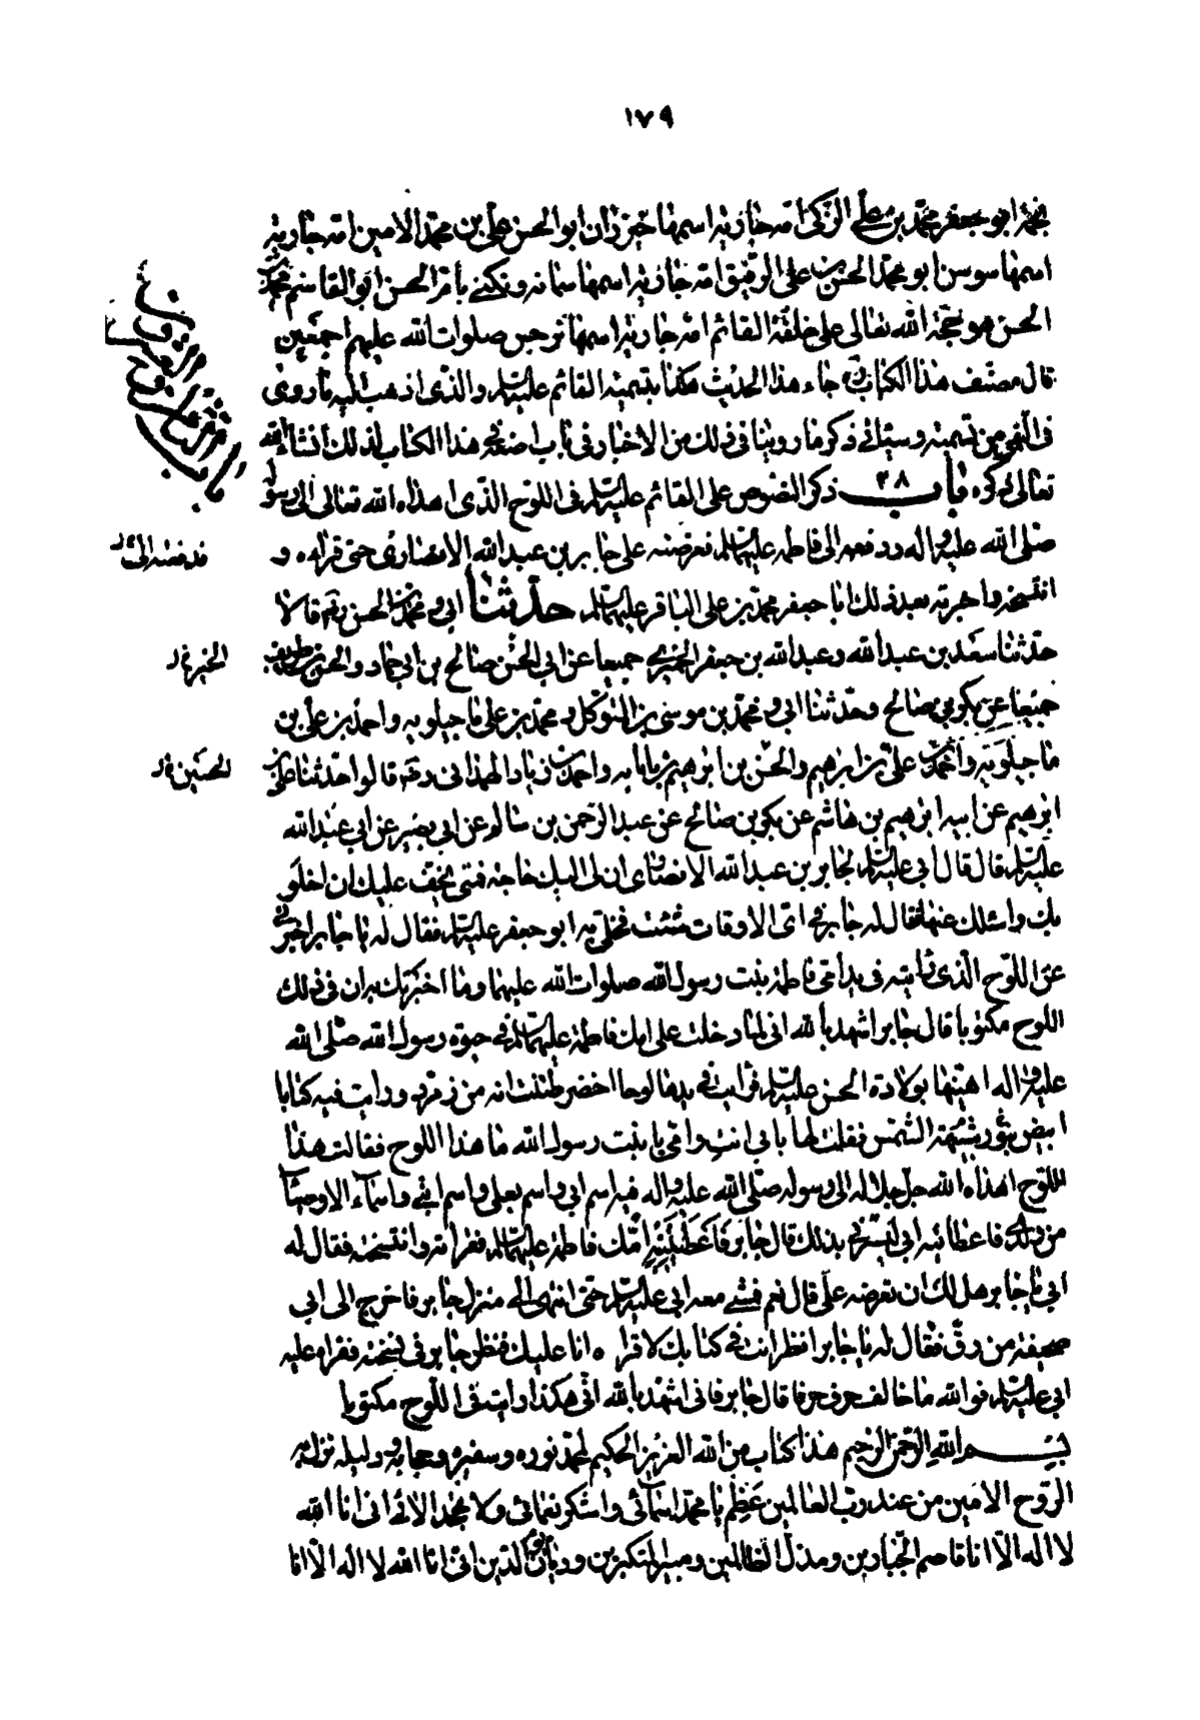 ١٧٩
نجمة ابو جعفر محمد بن علي الزكي امه جارية اسمها خيزران ابو الحسن علي بن محمد الامين امه جارية
اسمها سوسن ابو محمد الحسن بن علي الرفيق امه جارية اسمها سمانه وتكنى بام الحسن ابو القاسم محمد بن
الحسن هو حجة الله تعالى على خلقه القائم امه جارية اسمها نرجس صلوات الله عليهم اجمعين
قال مصنف هذا الكتاب ره جاء هذا الحديث هكذا بتسمية القائم عليه السلام والذي اذهب اليه ما روى
في النهي من تسميته وسياتي ذكر ما روينا في ذلك من الاخبار في باب اضعه في هذا الكتاب لذلك انشاء الله
تعالى ذكره باب ٢٨ ذكر النصوص على القائم عليه السلام في اللوح الذي اهداه الله تعالى الى رسوله
صلى الله عليه واله ودفعه الى فاطمة عليها السلام فعرضته على جابر بن عبد الله الانصاري حتى قراه و
انتسخه واخبر به بعد ذلك ابا جعفر محمد بن علي الباقر عليهما السلام حدثنا ابي و محمد بن الحسن رضه قالا
حدثنا سعد بن عبد الله وعبد الله بن جعفر الحميري جميعا عن ابي الحسن صالح بن ابي حماد والحسن بن طريف
جميعا عن بكر بن صالح وحدثنا ابي و محمد بن موسى بن المتوكل و محمد بن علي ماجيلويه واحمد بن علي بن
ماجيلويه واحمد بن علي بن ابرهيم والحسن بن ابرهيم بن ناتانه واحمد بن زياد الهمداني رضه قالوا حدثنا علي بن
ابرهيم عن ابيه ابرهيم بن هاشم عن بكر بن صالح عن عبد الرحمن بن سالم عن ابي بصير عن ابي عبد الله
عليه السلام قال قال ابي عليه السلام لجابر بن عبد الله الانصاري ان لي اليك حاجة فمتى يخف عليك ان اخلو
بك واسئلك عنها فقال له جابر في اي الاوقات شئت فخلى به ابو جعفر عليه السلام فقال له يا جابر اخبرني
عن اللوح الذي رايته في يد امي فاطمة بنت رسول الله صلوات الله عليهما وما اخبرتك به ان في ذلك
اللوح مكتوبا قال جابر اشهد بالله اني لما دخلت على امك فاطمة عليها السلام في حيوة رسول الله صلى الله
عليه واله اهنيها بولادة الحسن عليه السلام فرايت في يدها لوحا اخضر ظننت انه من زمرد ورايت فيه كتابا
ابيض بنور يشبه الشمس فقلت لها بابي انت وامي يا بنت رسول الله ما هذا اللوح فقالت هذا
اللوح اهداه الله جل جلاله الى رسوله صلى الله عليه واله فيه اسم ابي واسم بعلي واسم ابني واسماء الاوصياء
من ولدي فاعطانيه ابي ليسرني بذلك قال جابر فاعطيتنيه امك فاطمة عليها السلام فقراته وانتسخته فقال له
ابي يا جابر هل لك ان تعرضه علي قال نعم فمشى معه ابي عليه السلام حتى انتهى الى منزل جابر فاخرج الى ابي
صحيفة من رق فقال له يا جابر انظر انت في كتابك لاقراه انا عليك فنظر جابر في نسخته فقراه عليه
ابي عليه السلام فوالله ما خالف حرف حرفا قال جابر فاني اشهد بالله اني هكذا رايته في اللوح مكتوبا
بسم الله الرحمن الرحيم هذا كتاب من الله العزيز الحكيم لمحمد نوره وسفيره وحجابه ودليله نزل به
الروح الامين من عند رب العالمين عظم يا محمد اسمائي واشكر نعمائي ولا تجحد الائي اني انا الله
لا اله الا انا قاصم الجبارين ومذل الظالمين ومبير المتكبرين وديان يوم الدين اني انا الله لا اله الا انا
الحسين